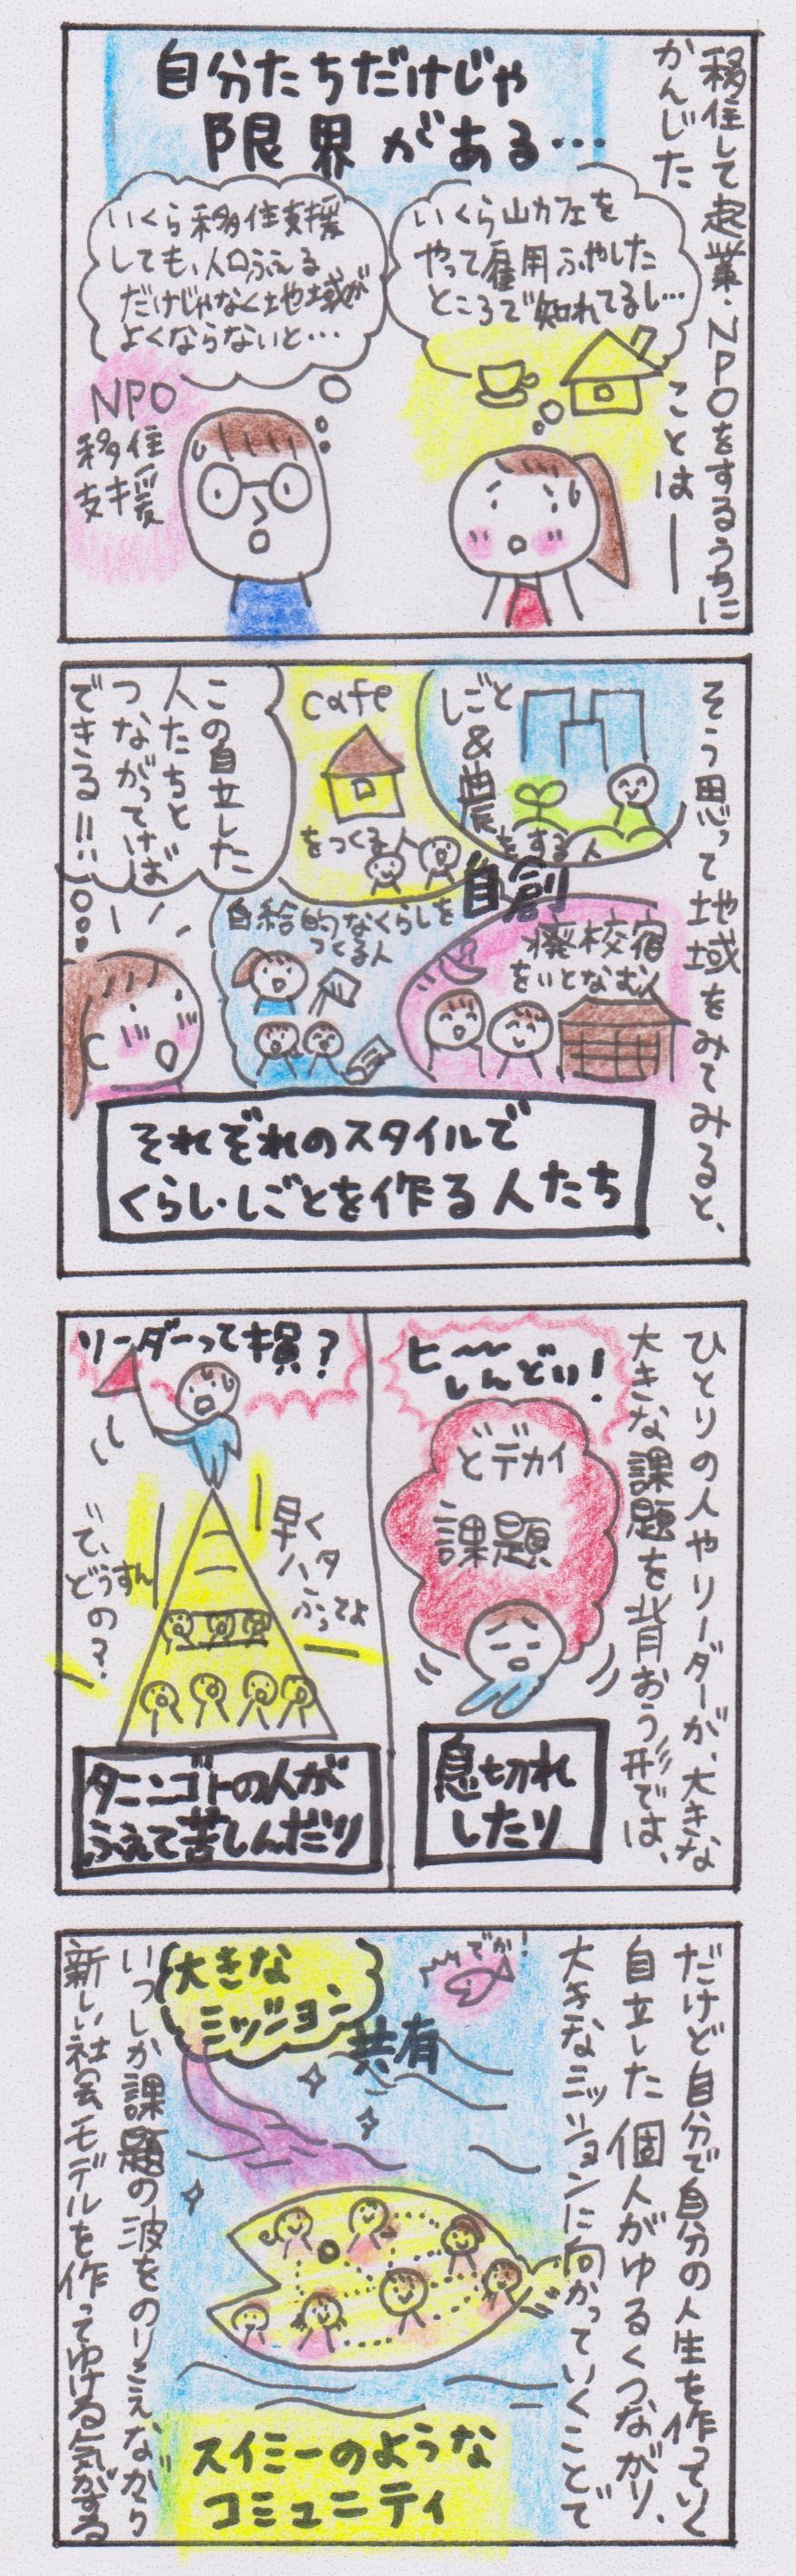 移住して起業・NPOをするうちに
かんじた
ことは―
自分たちだけじゃ
限界がある…
いくら山カフェを
やって雇用ふやした
ところで知れてるし…
いくら移住支援
しても、人口ふえる
だけじゃなく地域が
よくならないと…
NPO
移住
支援
そう思って地域をみてみると、
しごと
&農
をする人
cafe
をつくる人
自創
廃校宿
をいとなむ人
自給的なくらしを
つくる人
この自立した
人たちと
つながってけば
できる!!
それぞれのスタイルで
くらし・しごとを作る人たち
ひとりの人やリーダーが、大きな
大きな課題を背おう形では、
ヒ〜
しんどい!
どデカイ
課題
息切れ
したり
リーダーって損?
早く
ハタ
ふってよ
で、
どうすん
の?
タニンゴトの人が
ふえて苦しんだり
だけど自分で自分の人生を作っていく
自立した個人がゆるくつながり、
大きなミッションに向かっていくことで
でか!
大きな
ミッション
共有
スイミーのような
コミュニティ
いつしか課題の波をのりこえながら
新しい社会モデルを作ってゆける気がする